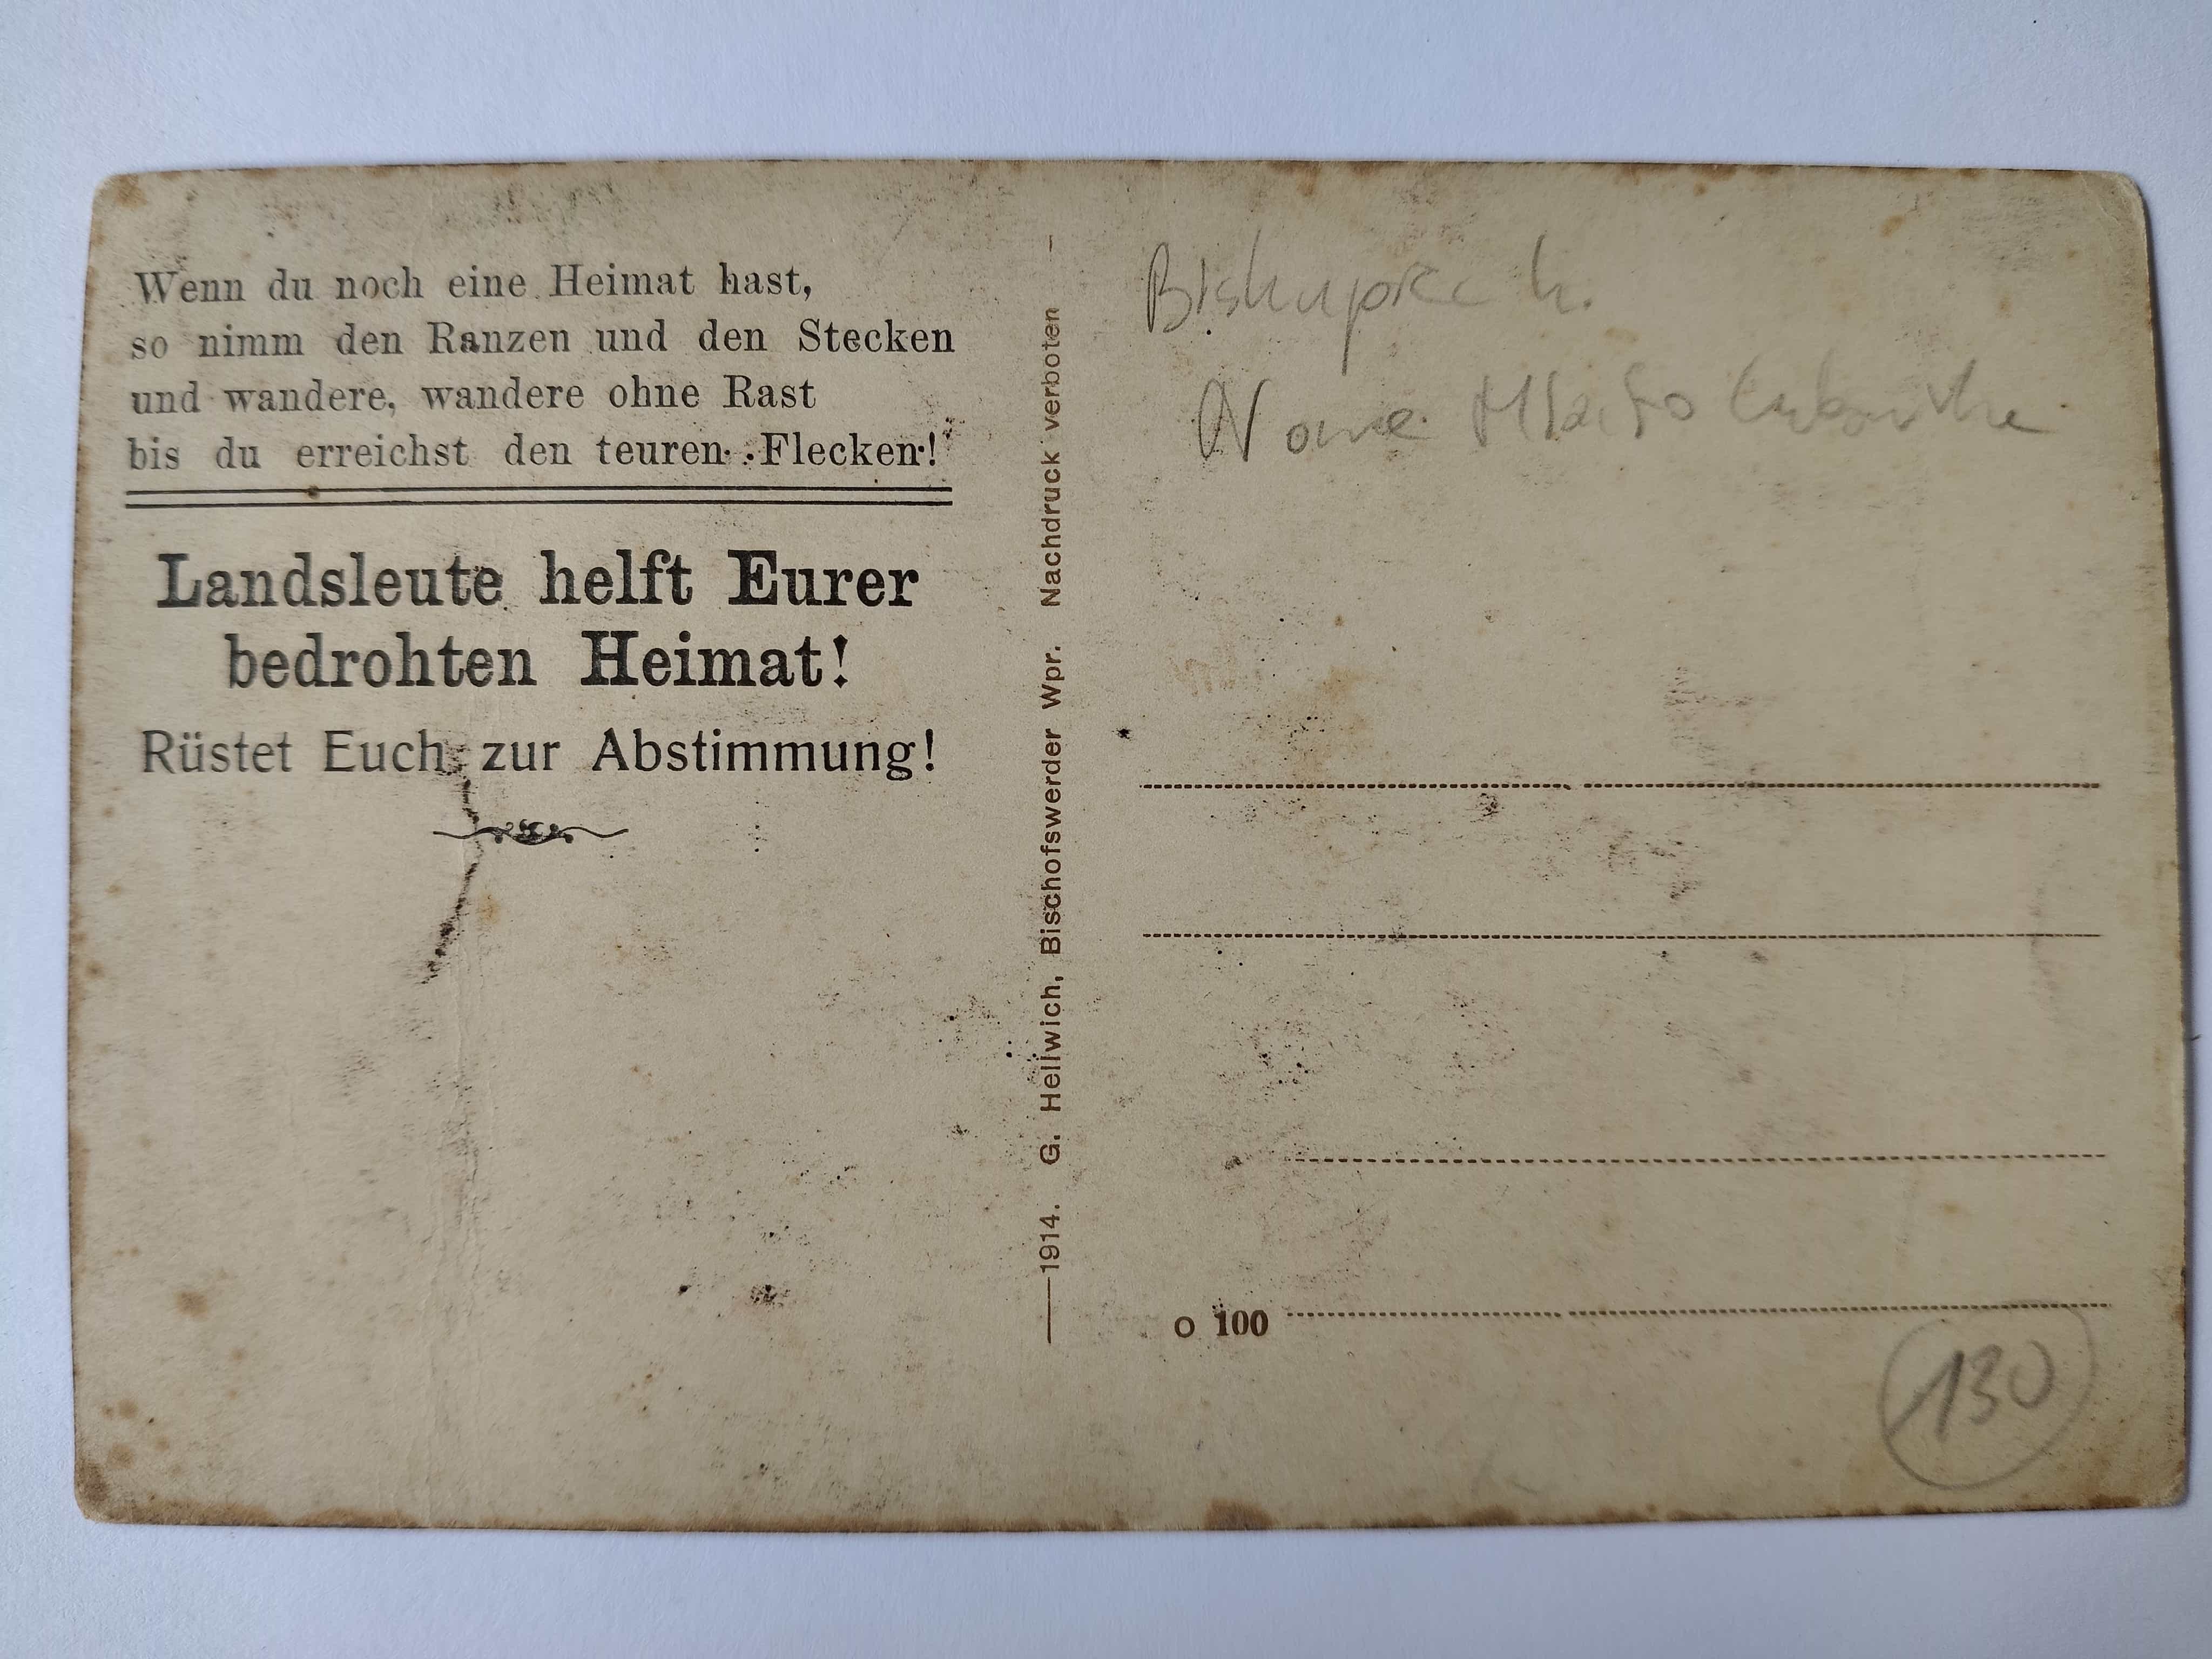 Wenn du noch eine Heimat hast,
so nimm den Ranzen und den Stecken
und wandere, wandere ohne Rast
bis du erreichst den teuren Flecken!
Landsleute helft Eurer
bedrohten Heimat!
Rüstet Euch zur Abstimmung!
1914. G. Hellwich, Bischofswerder Wpr. Nachdruck verboten
Biskupiec k.
Nowe Miasto Lubawskie
O 100
130